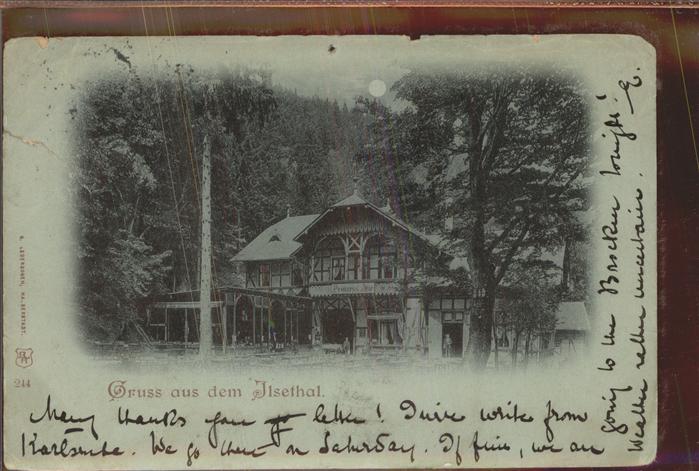 Prinzess Ilse
R. LEDERBOGEN, HALBERSTADT.
244
Gruss aus dem Ilsethal.
Many thanks you letter! I will write from
Karlsruhe. We go there on Saturday. If fine, we are
going to the Brocken tonight!
Weather rather uncertain. E.